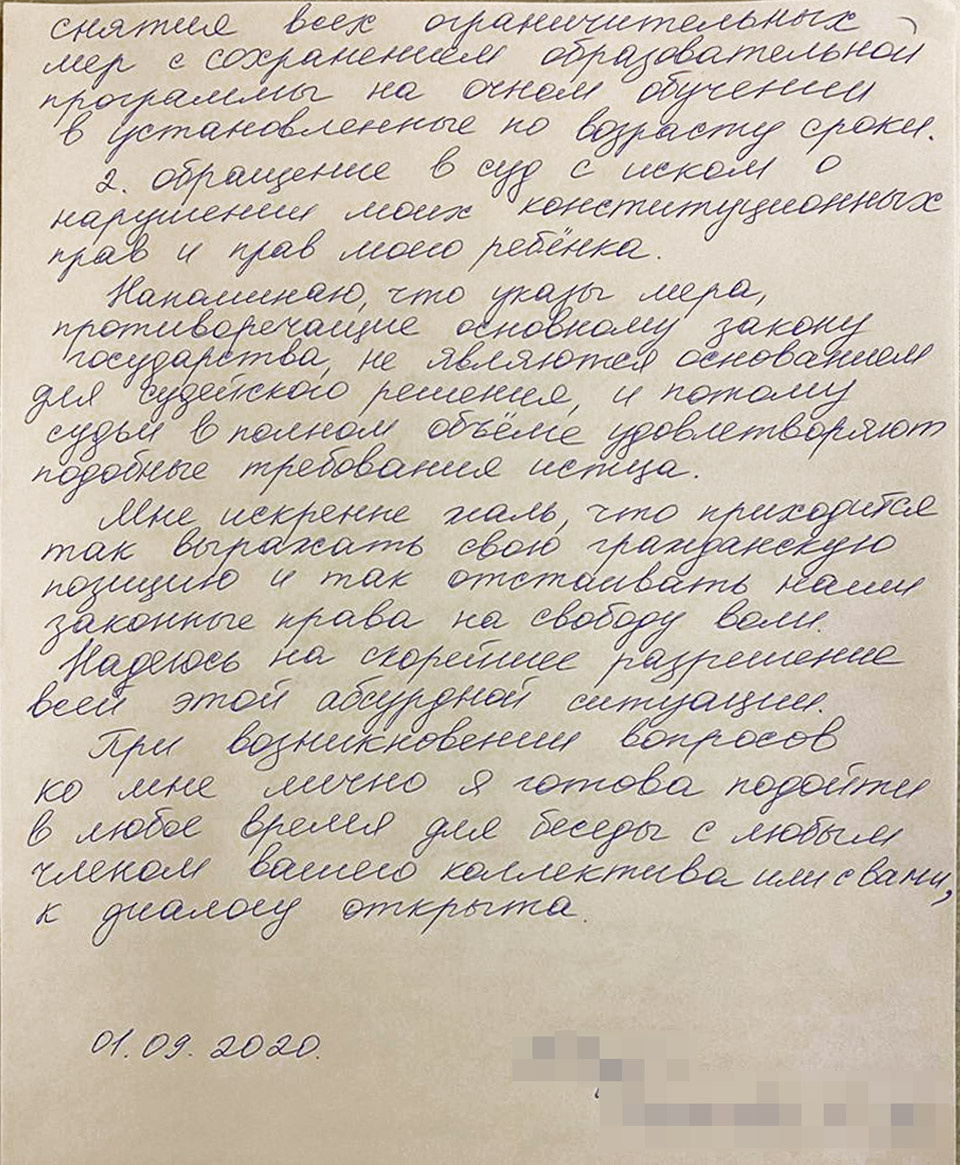 снятия всех ограничительных
мер с сохранением образовательной
программы на очном обучении
в установленные по возрасту сроки.
2. обращение в суд с иском о
нарушении моих конституционных
прав и прав моего ребёнка.
Напоминаю, что указы мера,
противоречащие основному закону
государства, не являются основанием
для судейского решения, и потому
судьи в полном объёме удовлетворяют
подобные требования истца.
Мне искренне жаль, что приходится
так выражать свою гражданскую
позицию и так отстаивать наши
законные права на свободу воли.
Надеюсь на скорейшее разрешение
всей этой абсурдной ситуации.
При возникновении вопросов
ко мне лично я готова подойти
в любое время для беседы с любым
членом вашего коллектива или с вами,
к диалогу открыта.
01.09.2020.